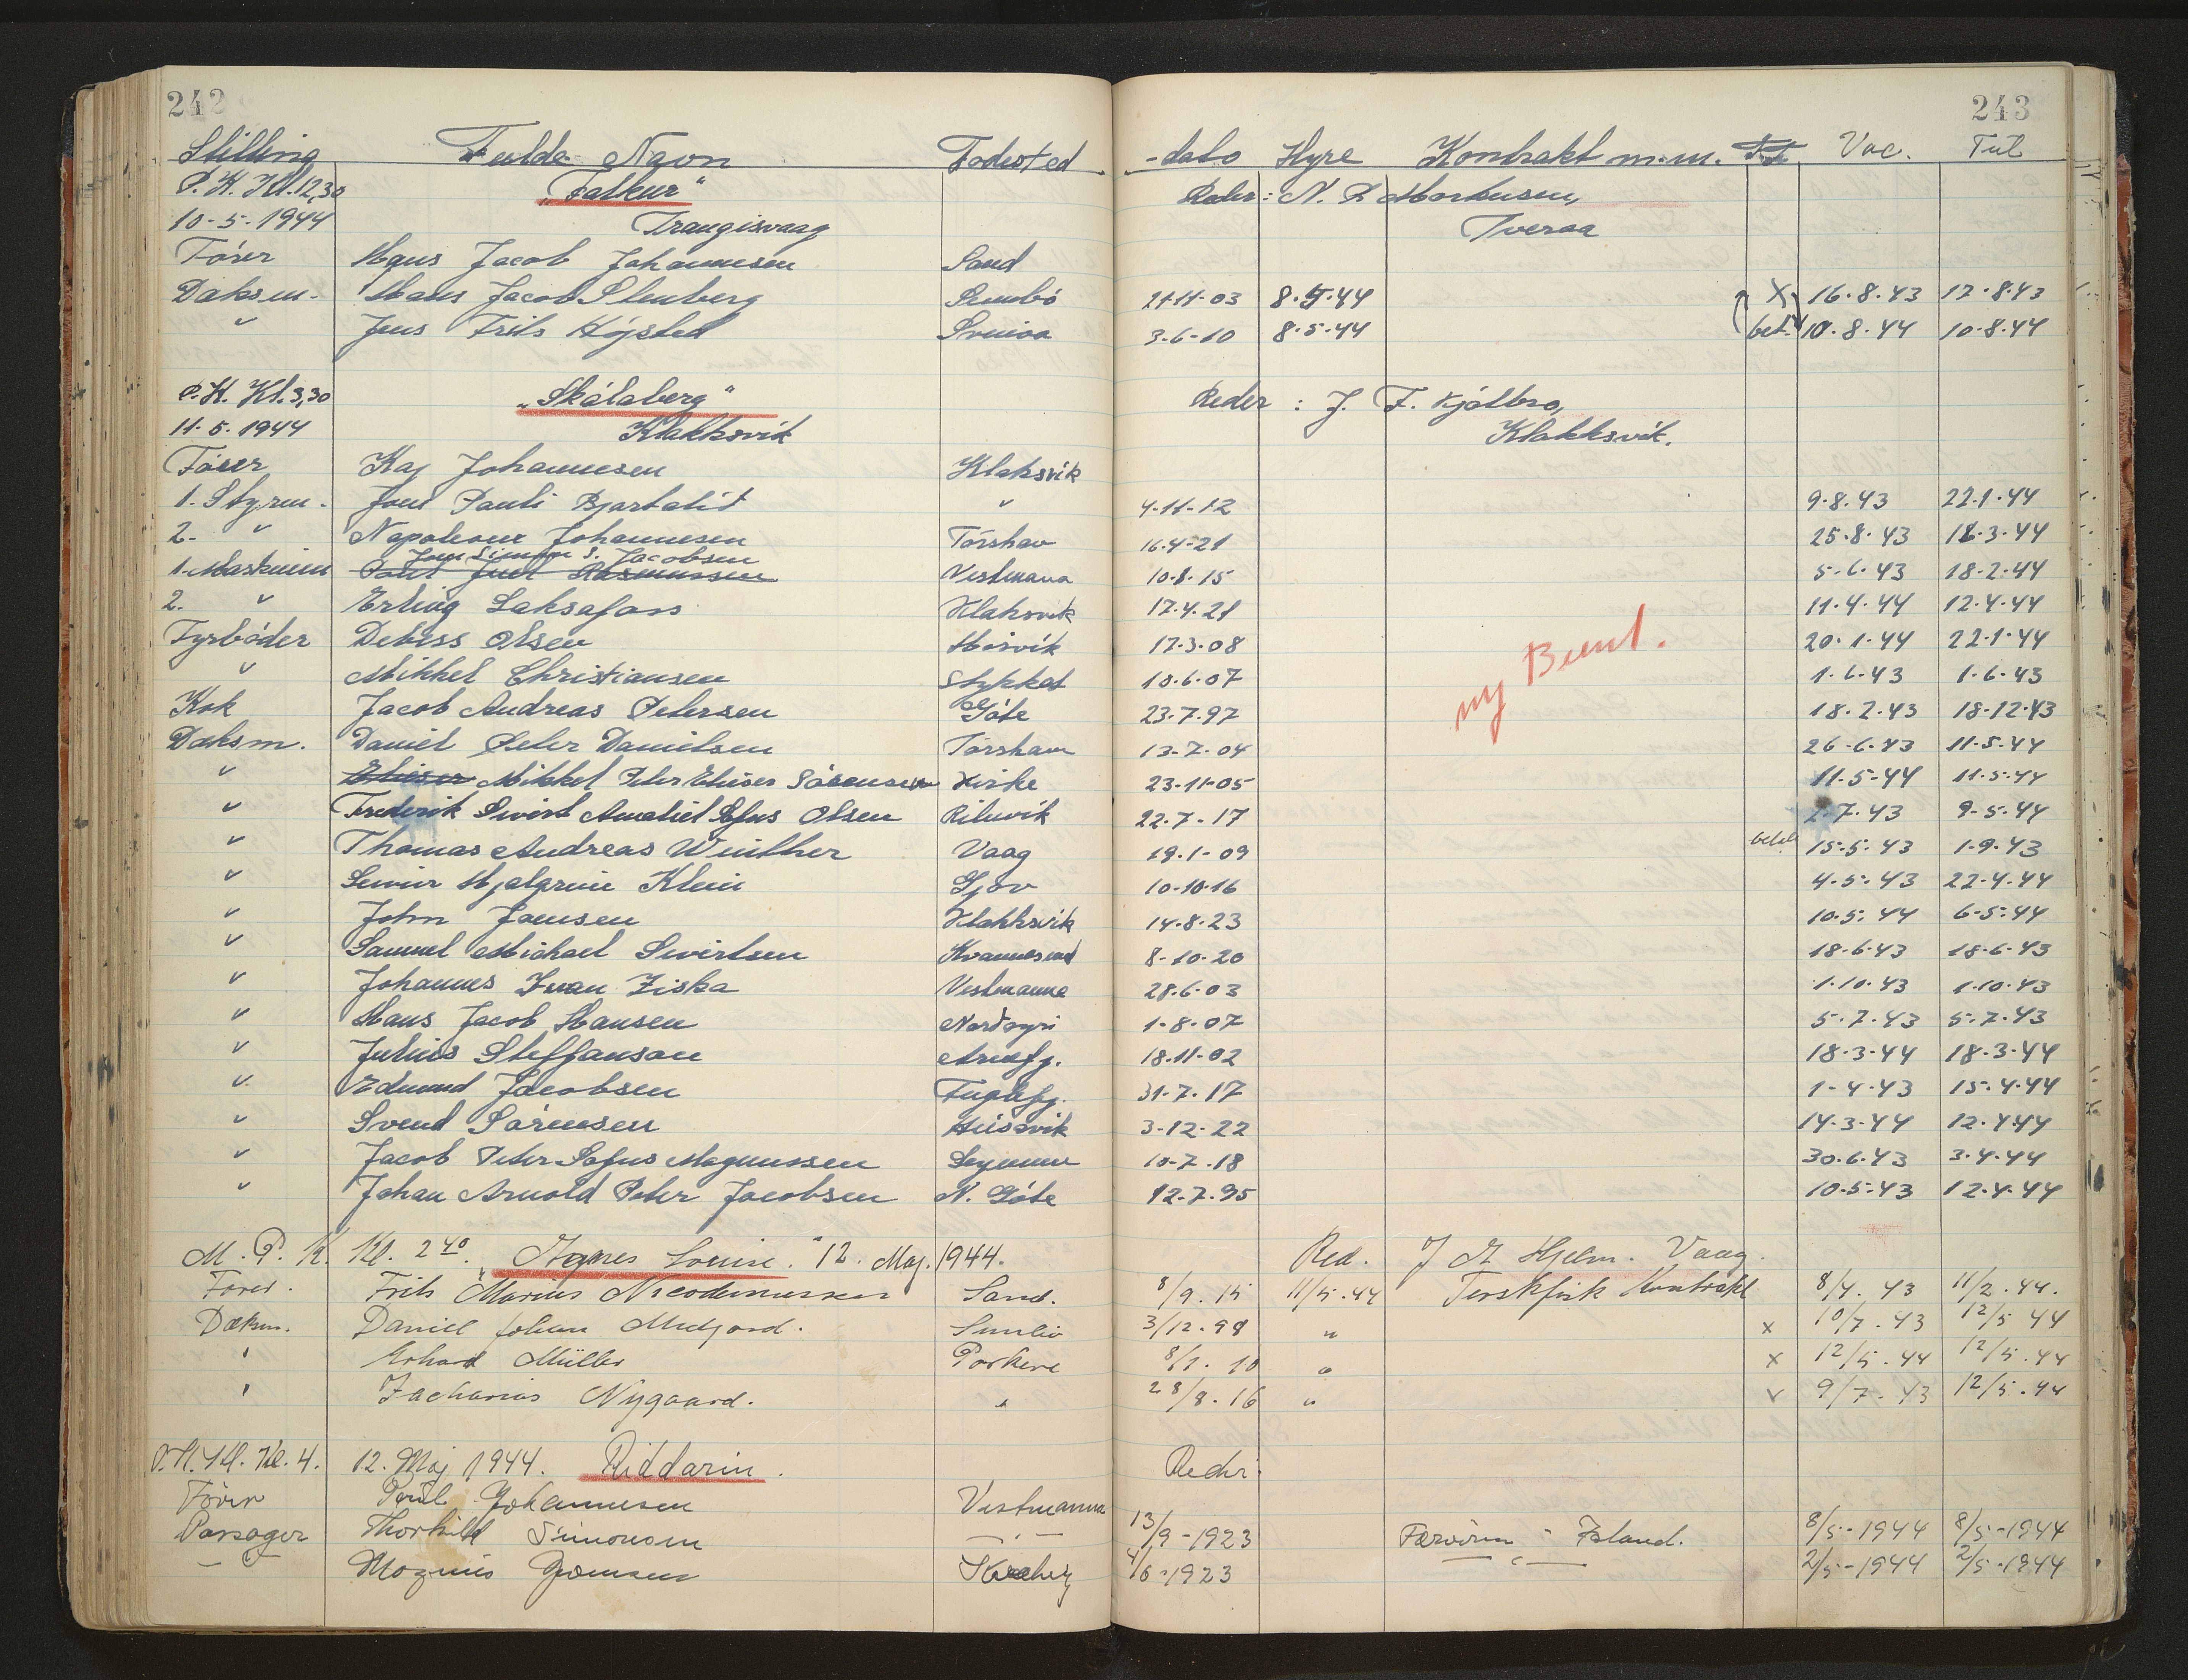 242 243
Stilling Fulde Navn Fødested -dato Hyre Kontrakt m.m. Vac. Tul
P.K. Kl. 12,30 "Falkur" Reder: N. P. Mortensen,
10-5-1944 Trangisvaag Tveraa
Fører Hans Jacob Johannesen Sand
Daksm. Hans Jacob Stenberg Sumbø 21-11-03 8.5.44 X 16.8.43 17.8.43
" Jens Frits Højsted 3-6-10 8.5.44 bet. 10.8.44 10.8.44
P.K. Kl. 3,30 "Skálaberg" Reder: J. F. Kjølbro,
11.5.1944 Klakksvik Klakksvik.
Fører Kaj Johannesen Klaksvik
1. Styrm. Joen Pauli Bjartalid " 4-11-12 9.8.43 22.1.44
2. " Napoleon Johannesen Tórshav 16.4-21 25.8.43 18.3.44
Jacobsen
1. Maskinm Poul Juel Rasmussen Vestmana 10.8.15 5.6.43 18.2.44
2. " Erling Laksafoss Klaksvik 17.4.21 11.4.44 12.4.44
Fyrbøder Debess Olsen Hósvík 17.3.08 20.1.44 22.1.44
" Mikkel Christiansen Stykket 10.6.07 1.6.43 1.6.43
Kok Jacob Andreas Petersen Gøte 23.7.97 18.2.43 18.12.43
Daksm. Daniel Peter Danielsen Tórshavn 13-7-04 26-6.43 11.5.44
" Elieser Mikkel Peter Elieser Sørensen Kirke 23-11-05 11.5-44 11.5.44
" Frederik Sivert Olsen 22.7-17 2.7.43 9-5.44
" Thomas Andreas Winther Vaag 19.1-09 15.5.43 1-9.43
" Klein Gjov 10-10-16 4.5.43 22.4.44
" John Joensen Klakksvik 14.8.23 10.5.44 6-5.44
" Samuel Michael Sivertsen Kvannesund 8-10-20 18.6.43 18.6.43
" Johannes Ivan Ziska Vestmanna 28.6.03 1.10.43 1.10.43
" Hans Jacob Hansen Nordoyri 1-8.07 5.7.43 5.7.43
" Julius Steffanson Arnafj. 18.11-02 18.3.44 18.3.44
" Edmund Jacobsen Fuglefj. 31-7.17 1-4-43 15.4.44
" Svend Sørensen Húsavik 3-12-22 14-3-44 12.4.44
" Jacob Peter Sofus Magnussen 10-7.18 30.6.43 3.4.44
" Johan Arnold Peter Jacobsen N. Gøte 12.7.95 10.5.43 12.4.44
ny Bunt.
M. P. K. Kl. 2 40. "Agnes Louise." 12. Maj. 1944. Red. Hjelm. Vaag.
Fører. Frits Marius Nicodemussen Sand. 8/9. 15 11/5.44 Torskfisk Kontrakt 8/4. 43 11/2.44.
Dæksm. Daniel Johan Midjord. 3/12.98 " x 10/7.43 12/5 44
" Erhard Müller Porkere 8/1. 10 " x 12/5.44 12/5.44
" Zacharias Nygaard. " 28/8.16 " v 9/7.43 12/5.44
Kl. 4. 12. Maj 1944. Riddarin. Reder:
Fører Poul Johannesen Vestmanna
Passager Thorkild Simonsen -"- 13/9-1923 Færøerne - Island. 8/5-1944 8/5-1944
-"- Magnus Joensen 4/6-1923 -"- 2/5-1944 2/5-1944